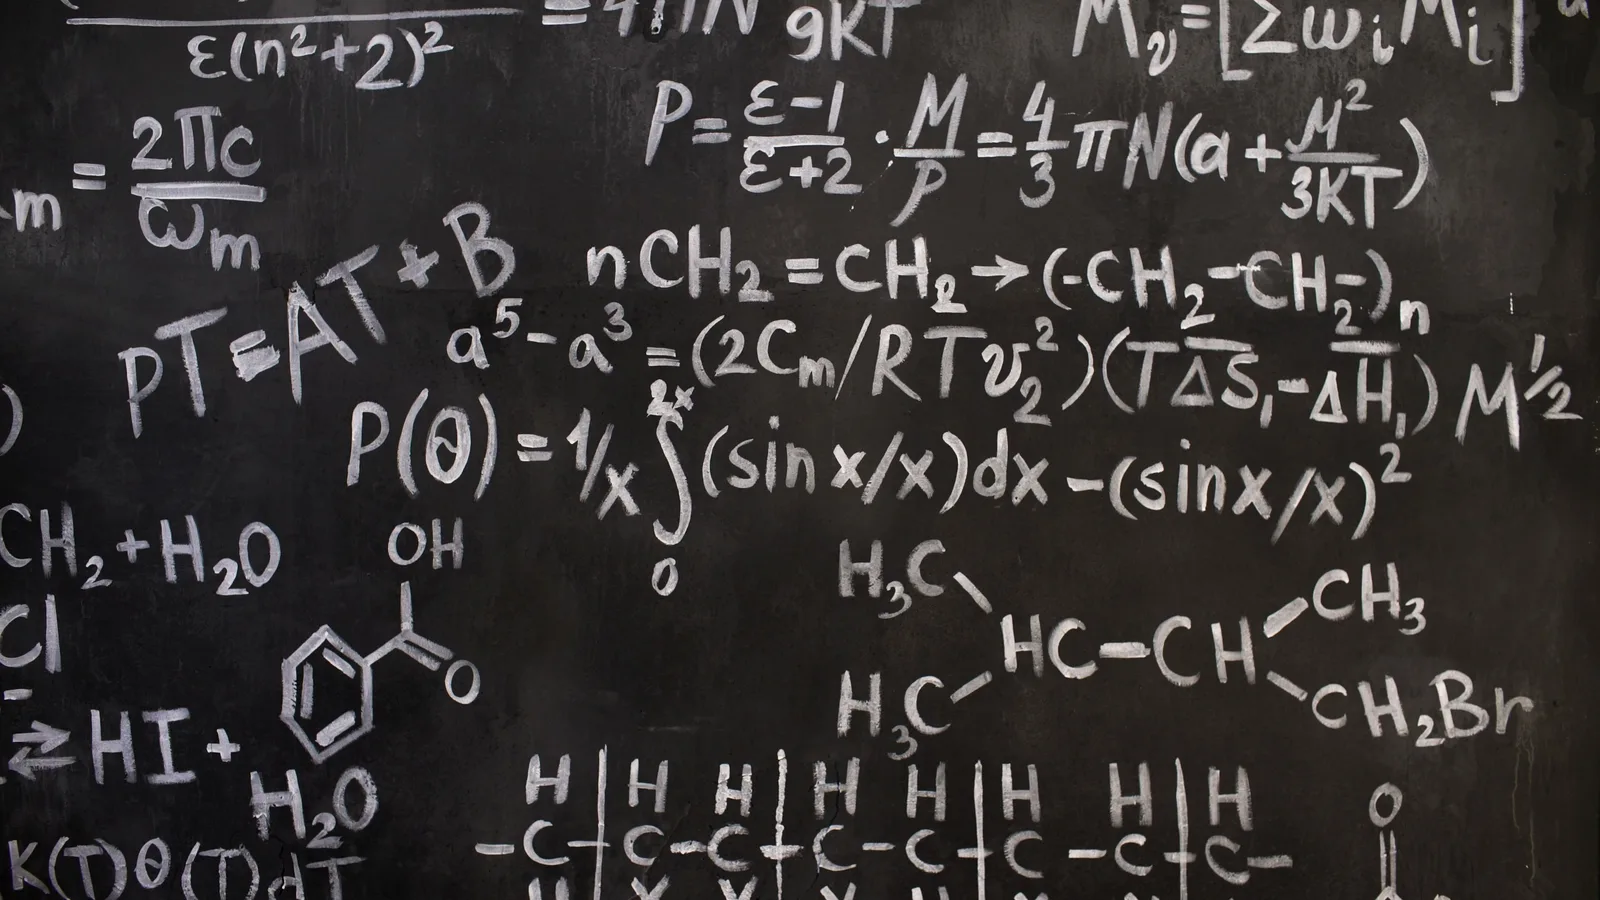 ε(n²+2)²
= 4πN
9KT
M_v = [Σω_i M_i]
P = (ε-1)/(ε+2) · M/p = 4/3 πN(a + M²/3KT)
m = 2πc/ω_m
PT = AT + B
nCH₂ = CH₂ → (-CH₂-CH₂-)n
a⁵ - a³ = (2Cm/RTv₂²)(TΔS₁-ΔH₁) M^1/2
P(θ) = 1/x ∫₀^2x (sin x/x)dx - (sinx/x)²
CH₂ + H₂O
OH
O
Cl
⇌ HI +
H₂O
K(T)θ(T)dT
H₃C CH₃
HC-CH
H₃C CH₂Br
H H H H H H H H
-C-C-C-C-C-C-C-C-
O